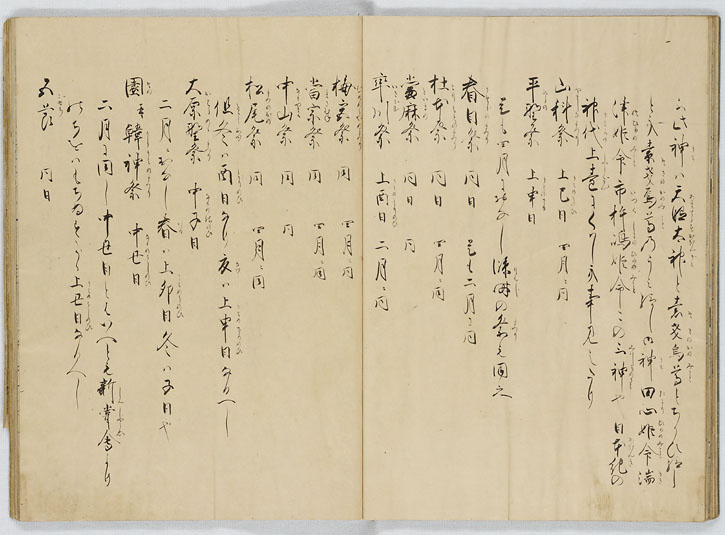 此神ハ天照太神と素戔烏尊とちかひ給し
素戔烏尊のうみ給し御神田心姫命湍
津姫命市杵嶋姫命この三神也日本紀の
神代上巻にくはしき事見えたり
山科祭 上巳日 四月ニ同
平野祭 上申日
是も四月におなし 使の事も同之
春日祭 同日 是も二月ニ同
杜本祭 同日 四月ニ同
當麻祭 同日 同
率川祭 上酉日 二月ニ同
梅宮祭 同 四月ニ同
當宗祭 同 四月ニ同
中山祭 同 同
松尾祭 同 四月ニ同
但冬ハ酉日なり夏ハ上申日なるへし
大原野祭 中子日
二月におなし春ハ上卯日冬ハ子日也
園并韓神祭 中丑日
二月に同し中丑日といへとも新嘗會より
のちをハもちゐす上丑日なるへし
五節 同日